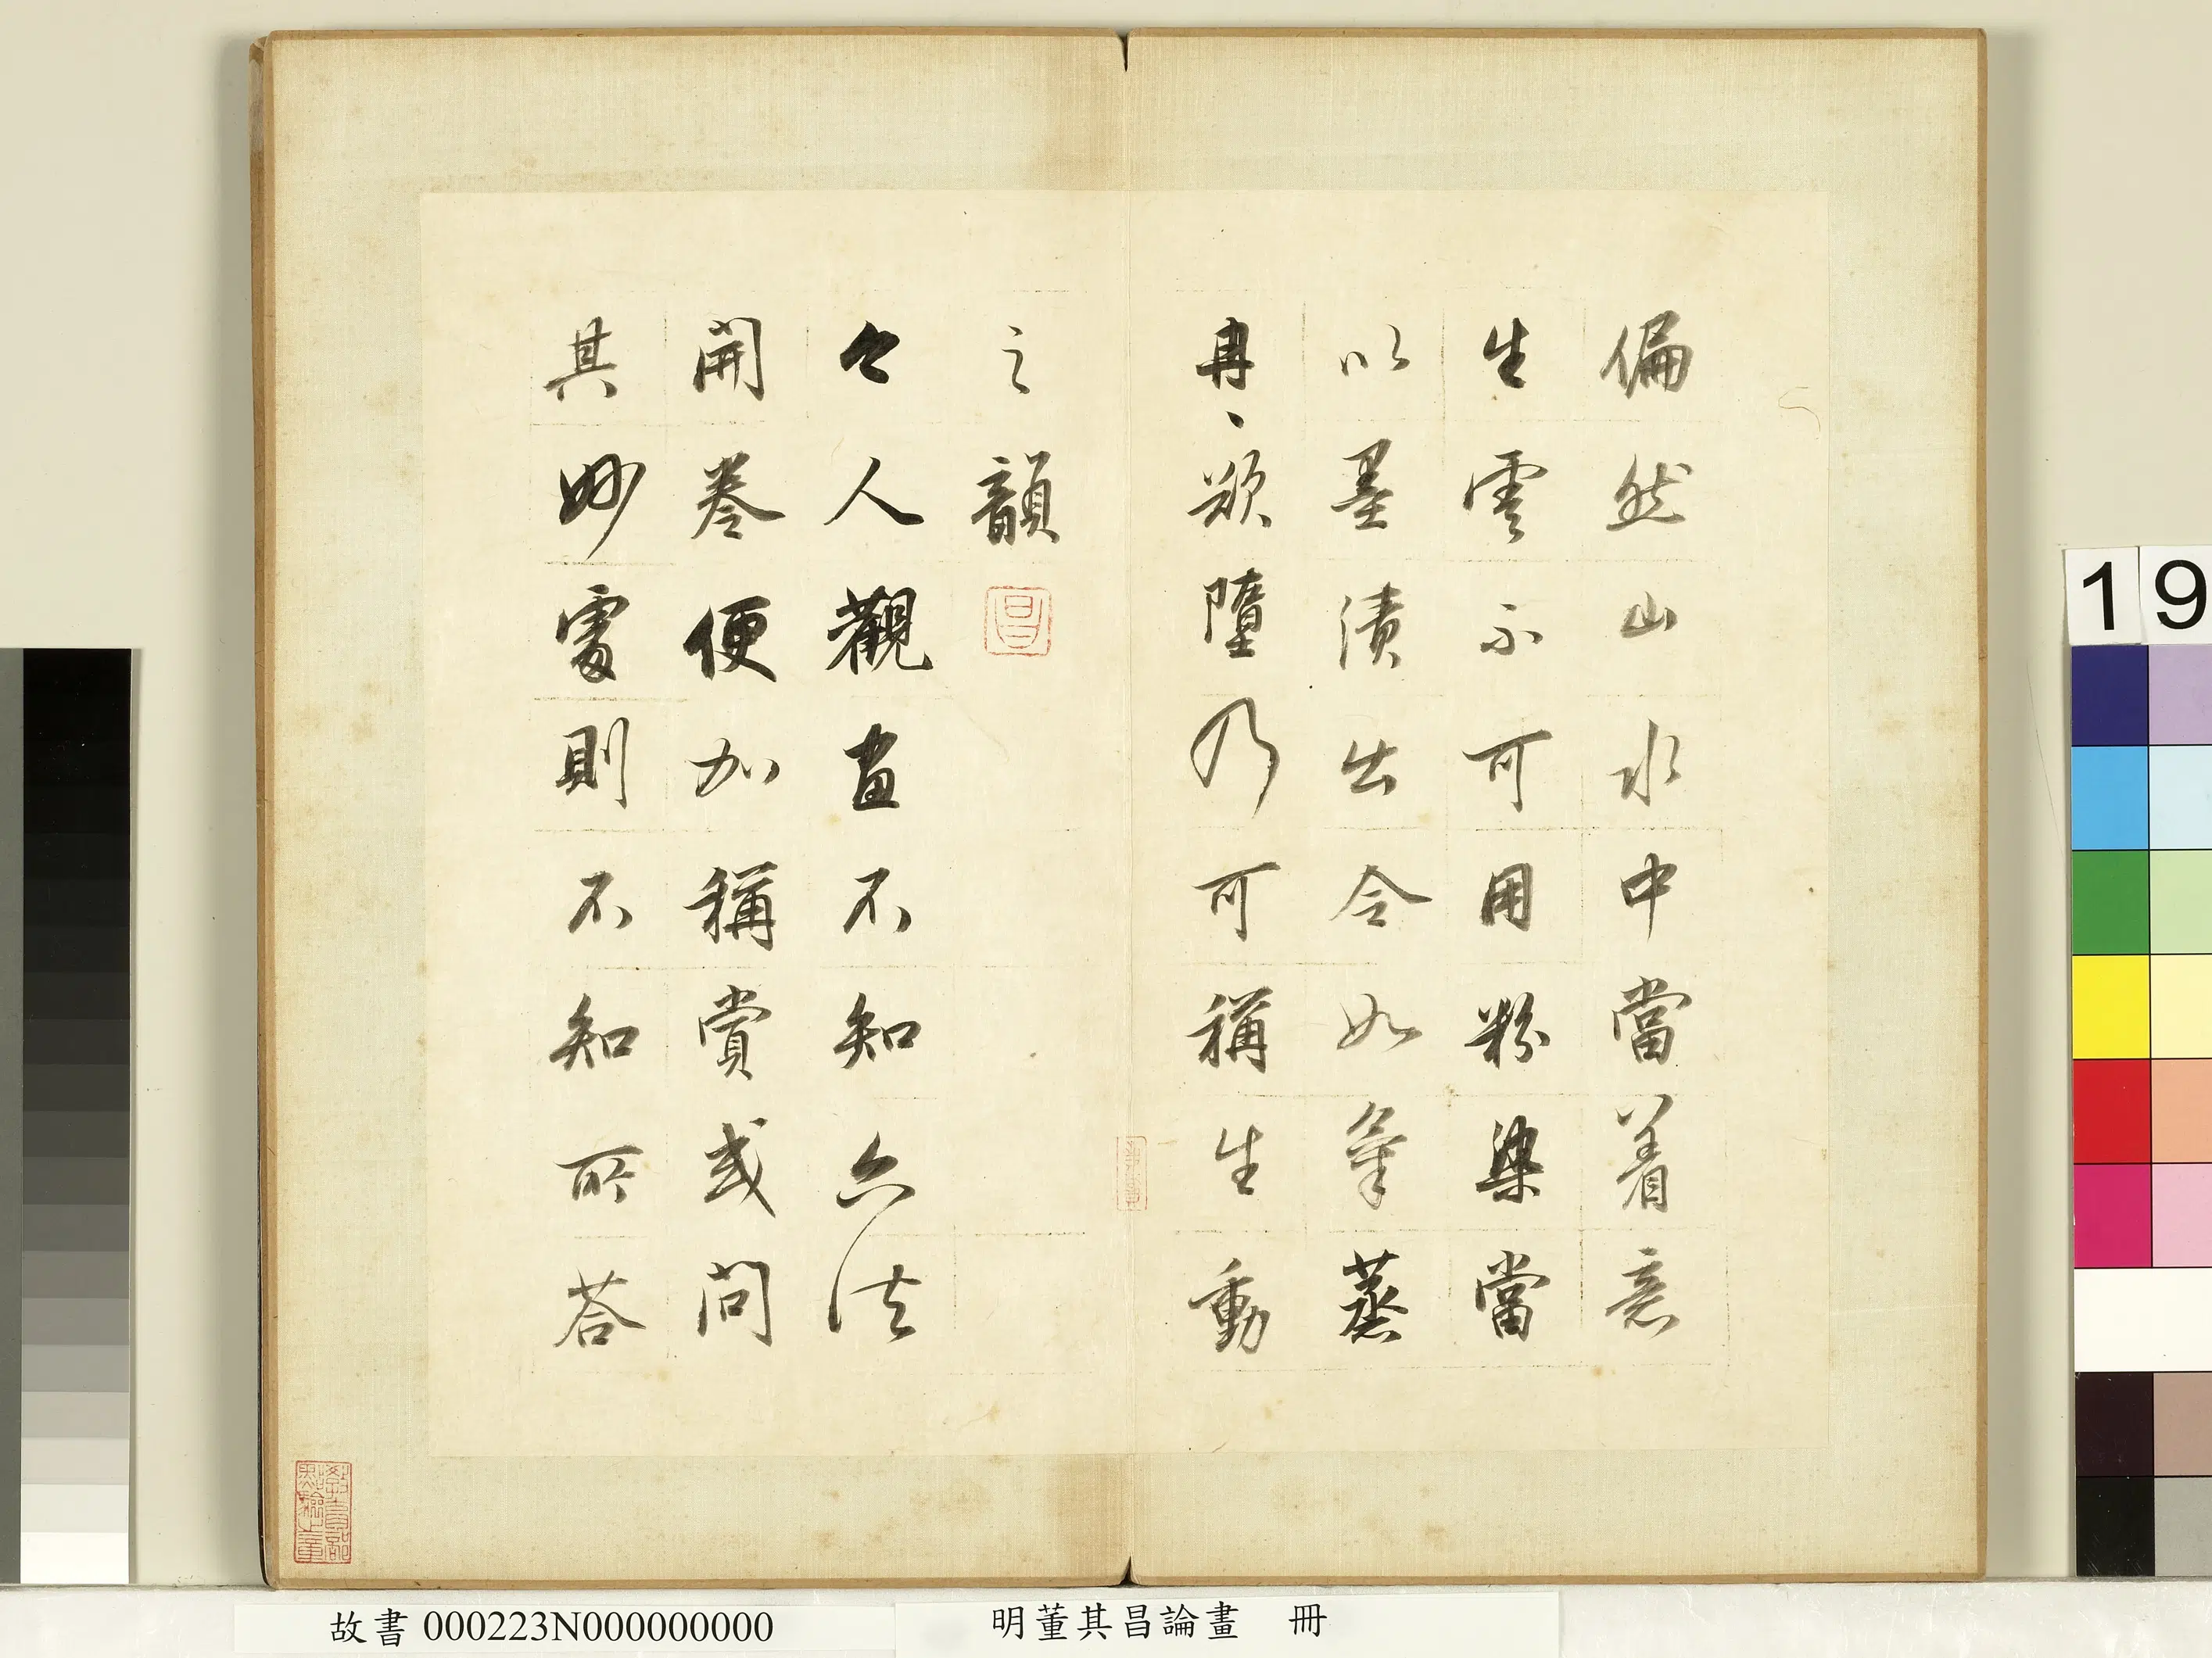 偏然山水中當着意
生雲不可用粉染當
以墨漬出令如氣蒸
冉、欲墮乃可稱生動
之韻
昌
今人觀畫不知六法
開卷便加稱賞或問
其妙處則不知所荅
教育部
點驗之章
19
故書000223N000000000
明董其昌論畫 冊